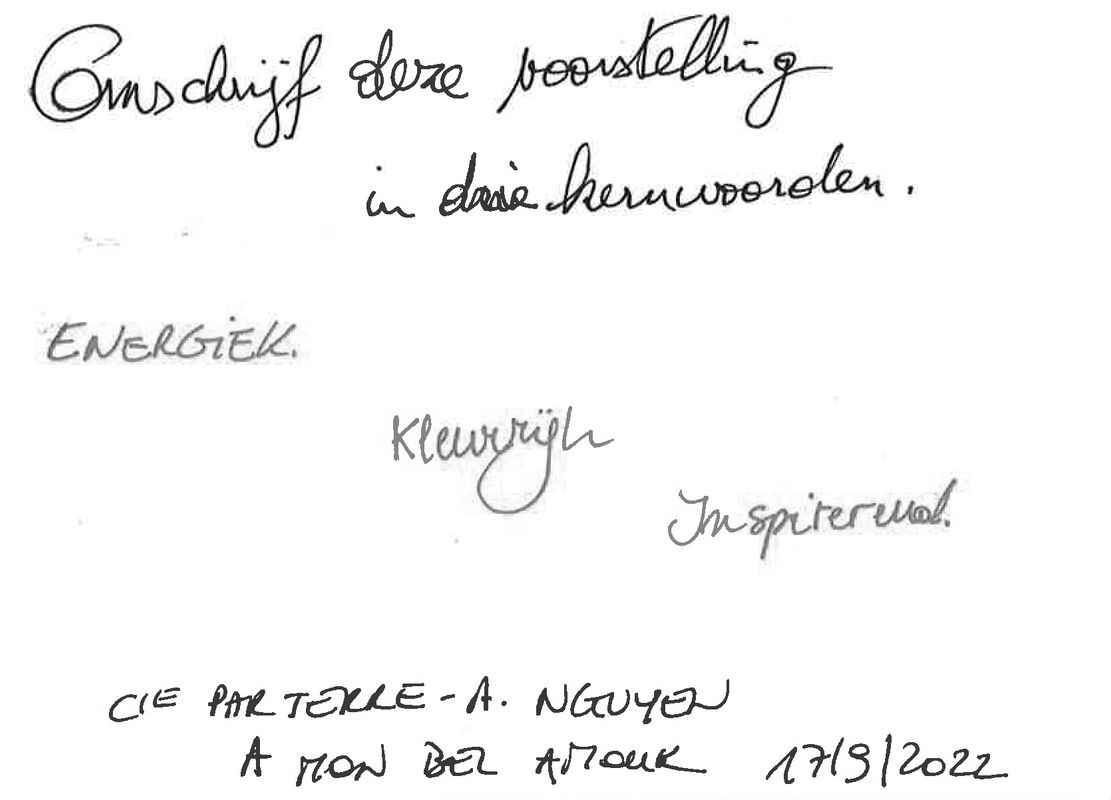 Omschrijf deze voorstelling
in drie kernwoorden.
ENERGIEK.
Kleurrijk
Inspirerend.
CIE PAR TERRE - A. NGUYEN
A MON BEL AMOUR 17/9/2022